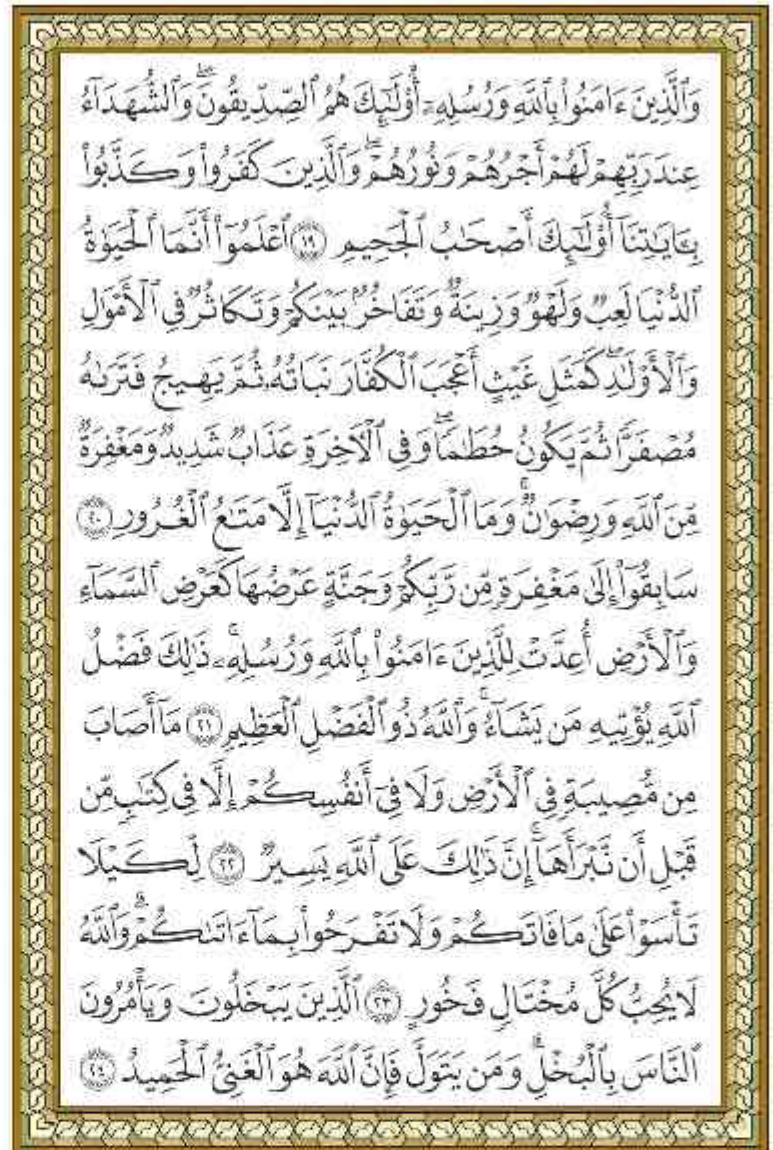 وَٱلَّذِينَ ءَامَنُوا۟ بِٱللَّهِ وَرُسُلِهِۦٓ أُو۟لَـٰٓئِكَ هُمُ ٱلصِّدِّيقُونَ ۖ وَٱلشُّهَدَآءُ
عِندَ رَبِّهِمْ لَهُمْ أَجْرُهُمْ وَنُورُهُمْ ۖ وَٱلَّذِينَ كَفَرُوا۟ وَكَذَّبُوا۟
بِـَٔايَـٰتِنَآ أُو۟لَـٰٓئِكَ أَصْحَـٰبُ ٱلْجَحِيمِ ١٩ ٱعْلَمُوٓا۟ أَنَّمَا ٱلْحَيَوٰةُ
ٱلدُّنْيَا لَعِبٌ وَلَهْوٌ وَزِينَةٌ وَتَفَاخُرٌۢ بَيْنَكُمْ وَتَكَاثُرٌ فِى ٱلْأَمْوَٰلِ
وَٱلْأَوْلَـٰدِ ۖ كَمَثَلِ غَيْثٍ أَعْجَبَ ٱلْكُفَّارَ نَبَاتُهُۥ ثُمَّ يَهِيجُ فَتَرَىٰهُ
مُصْفَرًّا ثُمَّ يَكُونُ حُطَـٰمًا ۖ وَفِى ٱلْـَٔاخِرَةِ عَذَابٌ شَدِيدٌ وَمَغْفِرَةٌ
مِّنَ ٱللَّهِ وَرِضْوَٰنٌ ۚ وَمَا ٱلْحَيَوٰةُ ٱلدُّنْيَآ إِلَّا مَتَـٰعُ ٱلْغُرُورِ ٢٠
سَابِقُوٓا۟ إِلَىٰ مَغْفِرَةٍ مِّن رَّبِّكُمْ وَجَنَّةٍ عَرْضُهَا كَعَرْضِ ٱلسَّمَآءِ
وَٱلْأَرْضِ أُعِدَّتْ لِلَّذِينَ ءَامَنُوا۟ بِٱللَّهِ وَرُسُلِهِۦ ۚ ذَٰلِكَ فَضْلُ
ٱللَّهِ يُؤْتِيهِ مَن يَشَآءُ ۚ وَٱللَّهُ ذُو ٱلْفَضْلِ ٱلْعَظِيمِ ٢١ مَآ أَصَابَ
مِن مُّصِيبَةٍ فِى ٱلْأَرْضِ وَلَا فِىٓ أَنفُسِكُمْ إِلَّا فِى كِتَـٰبٍ مِّن
قَبْلِ أَن نَّبْرَأَهَآ ۚ إِنَّ ذَٰلِكَ عَلَى ٱللَّهِ يَسِيرٌ ٢٢ لِّكَيْلَا
تَأْسَوْا۟ عَلَىٰ مَا فَاتَكُمْ وَلَا تَفْرَحُوا۟ بِمَآ ءَاتَىٰكُمْ ۗ وَٱللَّهُ
لَا يُحِبُّ كُلَّ مُخْتَالٍ فَخُورٍ ٢٣ ٱلَّذِينَ يَبْخَلُونَ وَيَأْمُرُونَ
ٱلنَّاسَ بِٱلْبُخْلِ ۗ وَمَن يَتَوَلَّ فَإِنَّ ٱللَّهَ هُوَ ٱلْغَنِىُّ ٱلْحَمِيدُ ٢٤